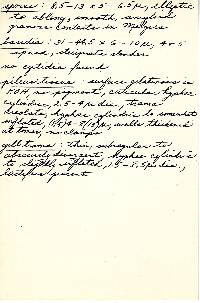 spores: 8.5-13 x 5-6.5µ, elliptic
to oblong, smooth, amyloid
granular contents in Melzers
basidia: 31-44.5 x 6-10µ, 4-5
spored, elongate clavate
no cystidia found
pileus trama: surface gelatinous in
KOH, no pigment, cuticular hyphae
cylindric, 2.5-4µ dia., trama
hyphae cylindric to somewhat
inflated, walls thickened
at times, no clamps
gill trama: thin, subregular to
obscurely divergent, hyphae cylindric
to inflated, dia.,
present